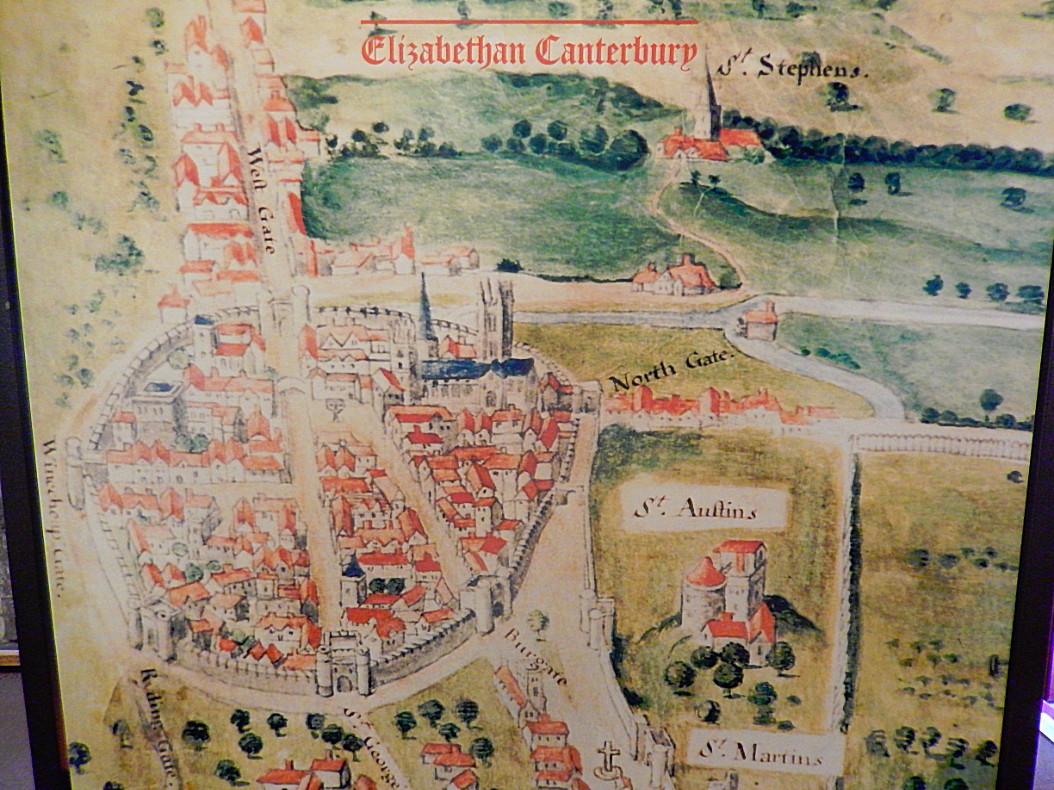 Elizabethan Canterbury
St. Stephens.
West Gate
North Gate.
St. Austins
Burgate
Riding Gate.
St. George
St. Martins